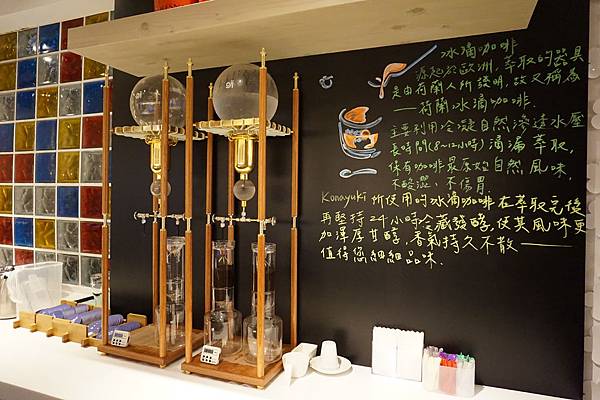 冰滴咖啡
源起於歐洲,萃取的器具
是由荷蘭人所發明,故又稱為
——荷蘭冰滴咖啡.
主要利用冷凝自然滲透水壓
長時間(8~12小時)滴漏萃取,
保有咖啡最原始自然風味,
不酸澀、不傷胃.
Konayuki 所使用的冰滴咖啡在萃取完後
再堅持24小時冷藏發酵,使其風味更
加渾厚甘醇,香氣持久不散——
值得您細細品味.